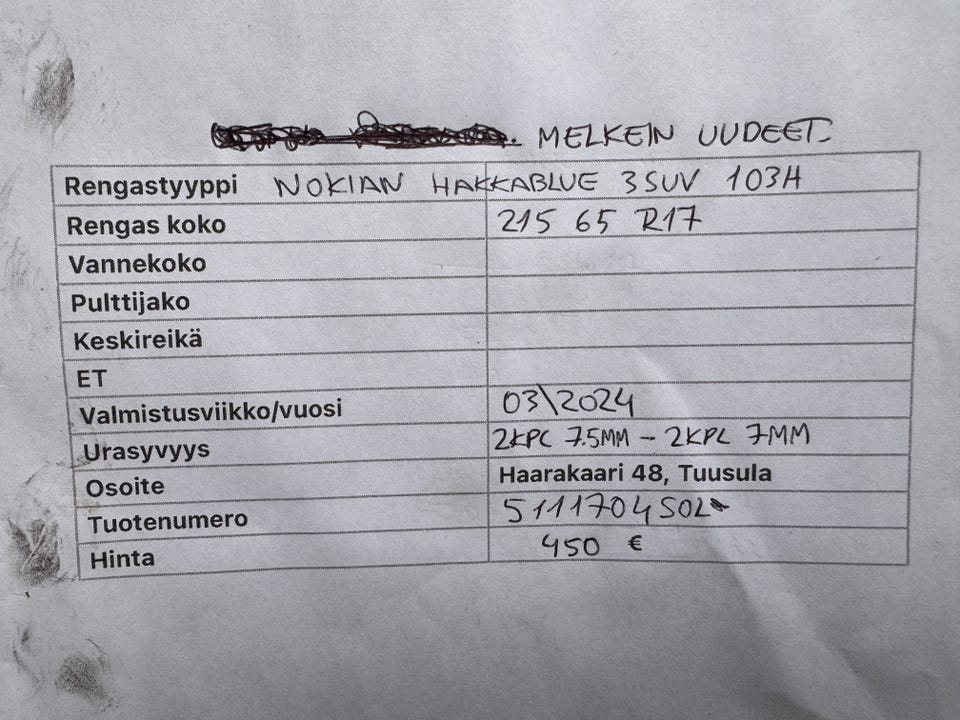 MELKEIN UUDEET.
Rengastyyppi NOKIAN HAKKABLUE 3SUV 103H
Rengas koko 215 65 R17
Vannekoko
Pulttijako
Keskireikä
ET
Valmistusviikko/vuosi 03\2024
Urasyvyys 2KPL 7.5MM - 2KPL 7MM
Osoite Haarakaari 48, Tuusula
Tuotenumero 5111704SOL
Hinta 450 €